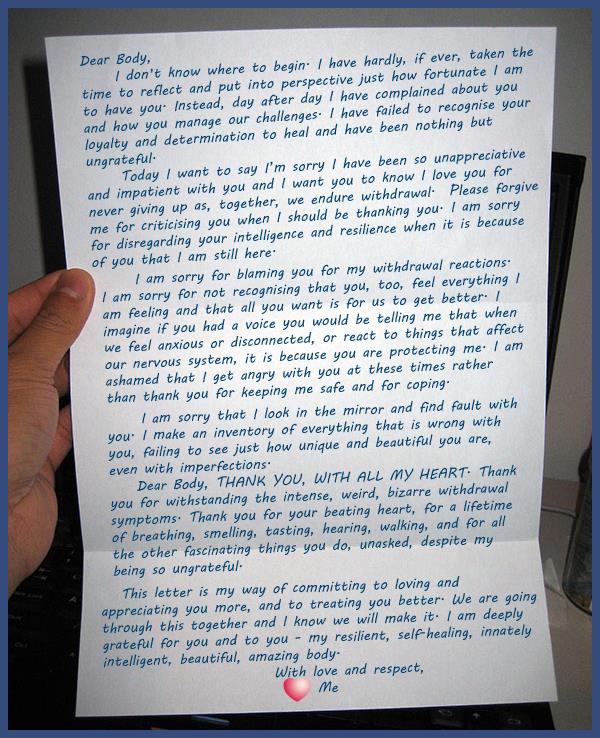 Dear Body,
I don't know where to begin. I have hardly, if ever, taken the
time to reflect and put into perspective just how fortunate I am
to have you. Instead, day after day I have complained about you
and how you manage our challenges. I have failed to recognise your
loyalty and determination to heal and have been nothing but
ungrateful.
Today I want to say I'm sorry I have been so unappreciative
and impatient with you and I want you to know I love you for
never giving up as, together, we endure withdrawal. Please forgive
me for criticising you when I should be thanking you. I am sorry
for disregarding your intelligence and resilience when it is because
of you that I am still here.
I am sorry for blaming you for my withdrawal reactions.
I am sorry for not recognising that you, too, feel everything I
am feeling and that all you want is for us to get better. I
imagine if you had a voice you would be telling me that when
we feel anxious or disconnected, or react to things that affect
our nervous system, it is because you are protecting me. I am
ashamed that I get angry with you at these times rather
than thank you for keeping me safe and for coping.
I am sorry that I look in the mirror and find fault with
you. I make an inventory of everything that is wrong with
you, failing to see just how unique and beautiful you are,
even with imperfections.
Dear Body, THANK YOU, WITH ALL MY HEART. Thank
you for withstanding the intense, weird, bizarre withdrawal
symptoms. Thank you for your beating heart, for a lifetime
of breathing, smelling, tasting, hearing, walking, and for all
the other fascinating things you do, unasked, despite my
being so ungrateful.
This letter is my way of committing to loving and
appreciating you more, and to treating you better. We are going
through this together and I know we will make it. I am deeply
grateful for you and to you - my resilient, self-healing, innately
intelligent, beautiful, amazing body.
With love and respect,
Me